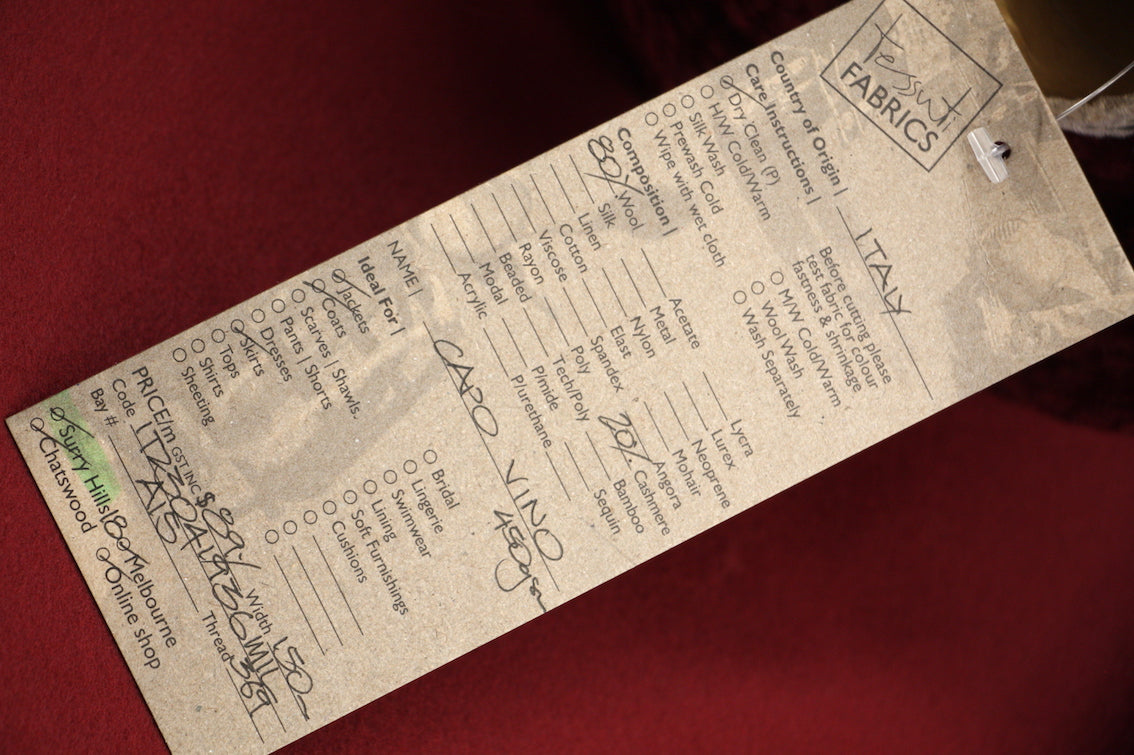 tessuti
FABRICS
Country of Origin | ITALY
Care Instructions |
Dry Clean (P)
H/W Cold/Warm
Silk Wash
Prewash Cold
Wipe with wet cloth
Before cutting please
test fabric for colour
fastness & shrinkage
M/W Cold/Warm
Wool Wash
Wash Separately
Composition |
80% Wool
Silk
Linen
Cotton
Viscose
Rayon
Beaded
Modal
Acrylic
Acetate
Metal
Nylon
Elast
Spandex
Poly
Tech/Poly
P/mide
P/urethane
Lycra
Lurex
Neoprene
Mohair
Angora
20% Cashmere
Bamboo
Sequin
NAME | CAPO VINO
450gsm
Ideal For |
Jackets
Coats
Scarves | Shawls.
Pants | Shorts
Dresses
Skirts
Tops
Shirts
Sheeting
Bridal
Lingerie
Swimwear
Lining
Soft Furnishings
Cushions
PRICE/m GST INC Width 150
Code
Thread 369
Bay # A15
Surry Hills 18 Melbourne
Chatswood Online shop